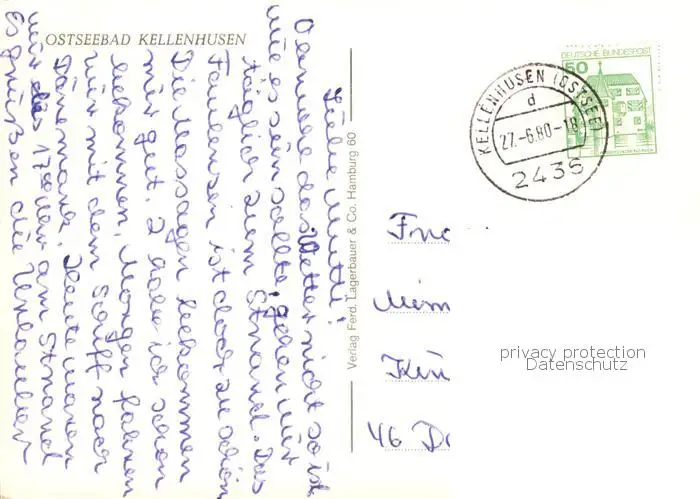 OSTSEEBAD KELLENHUSEN
Liebe Mutti!
Obwohl das Wetter nicht so ist
wie es sein sollte, gehen wir
täglich zum Strand. Das
Faulenzen ist doch zu schön
Die Massagen bekommen
mir gut. 2 habe ich schon
bekommen. Morgen fahren
wir mit dem Schiff nach
Dänemark. Heute waren
wir bis 17°° Uhr am Strand
Es grüßen die Urlauber
Verlag Ferd. Lagerbauer & Co. Hamburg 60
DEUTSCHE BUNDESPOST
50
KELLENHUSEN (OSTSEE)
d
27.-6.80-18
2435
46 Do
privacy protection
Datenschutz